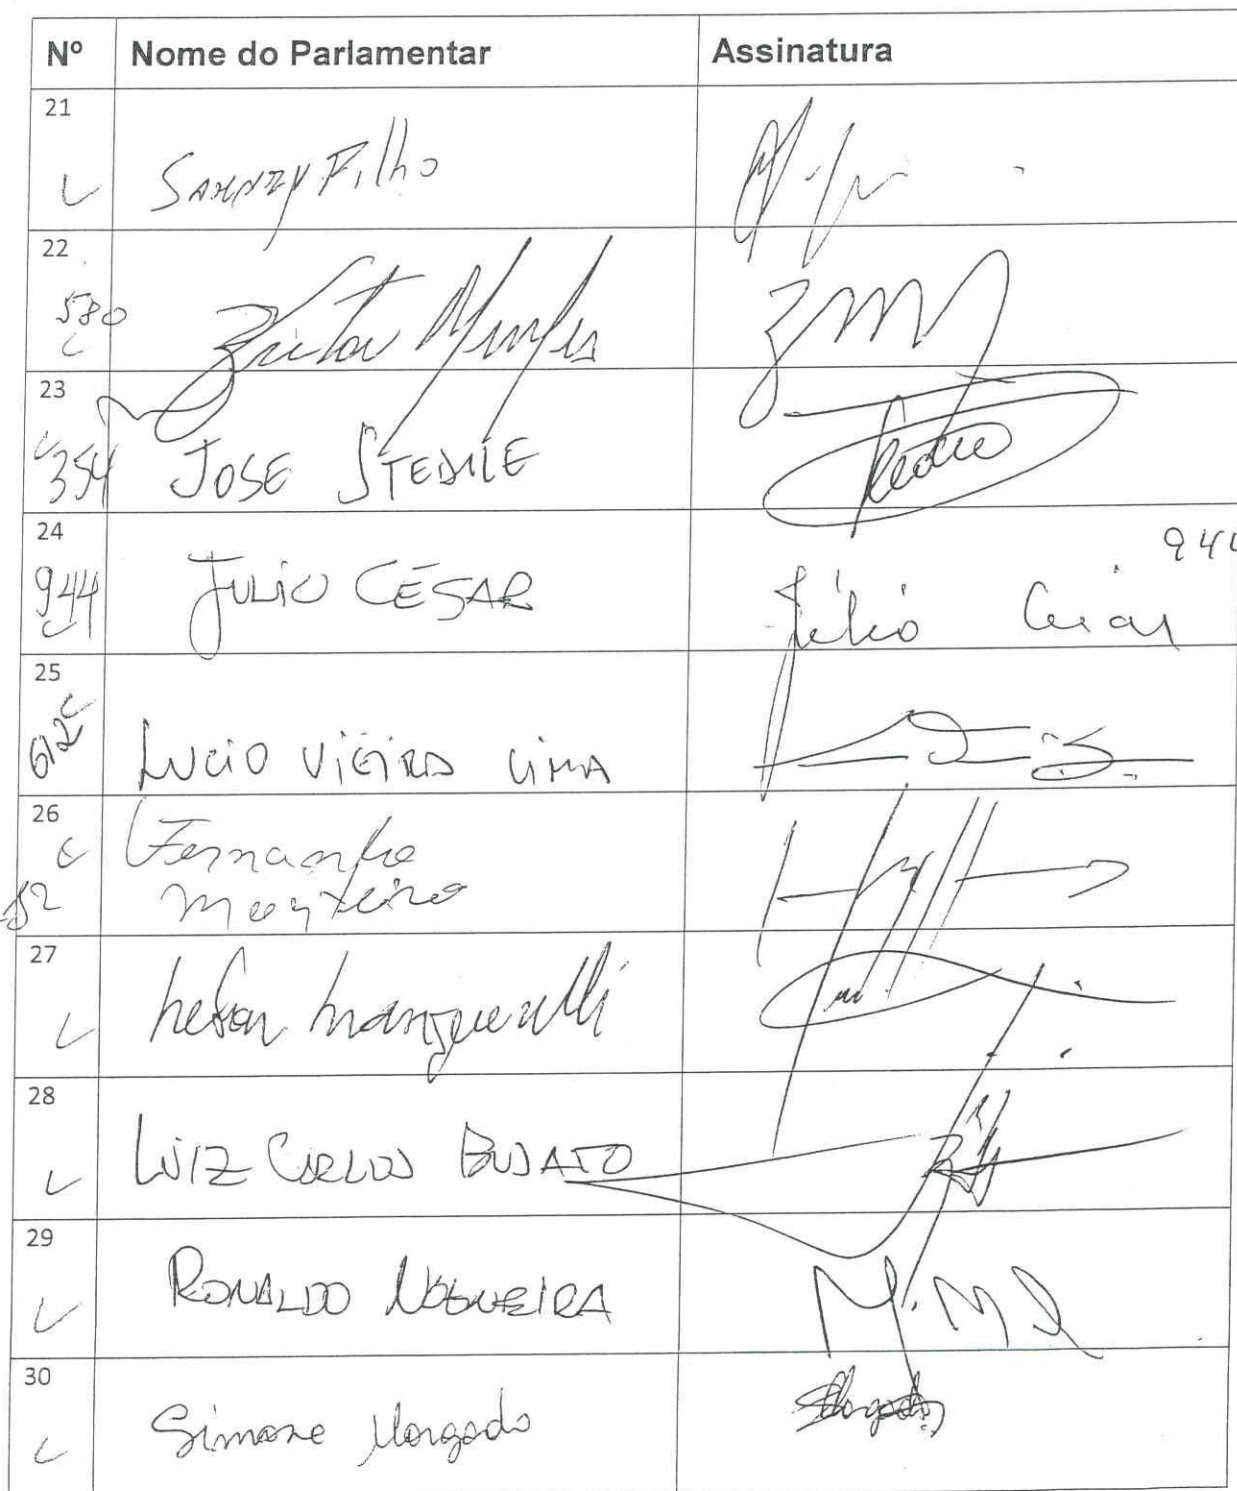 Nº Nome do Parlamentar Assinatura
21
Sarney Filho
22
580
Victor Mendes
23
354 JOSE STEDILE
24
944
944 JULIO CÉSAR Júlio Cesar
25
612 LUCIO VIEIRA LIMA
26
Fernando
82 Monteiro
27
Nelson Marquezelli
28
LUIZ CARLOS BUSATO
29
RONALDO NOGUEIRA
30
Simone Morgado SMorgado